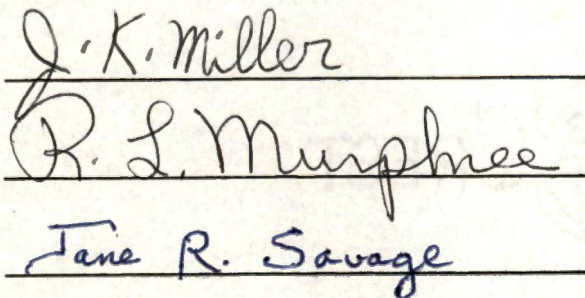 J. K. Miller
R. L. Murphree
Jane R. Savage